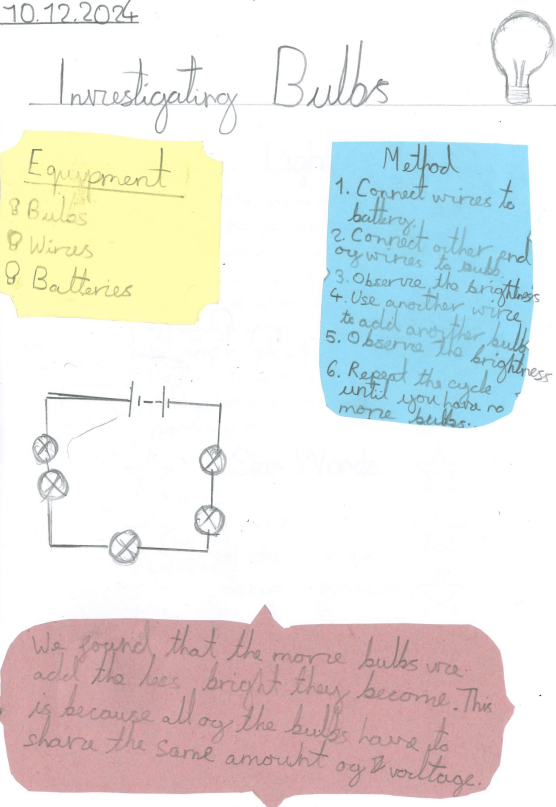 10.12.2024
Investigating Bulbs
Equipment
Bulbs
Wires
Batteries
Method
1. Connect wires to
battery.
2. Connect other end
of wires to bulb.
3. Observe the brightness
4. Use another wire
to add another bulb
5. Observe the brightness
6. Repeat the cycle
until you have no
more bulbs.
We found that the more bulbs we
add the less bright they become. This
is because all of the bulbs have to
share the same amount of voltage.